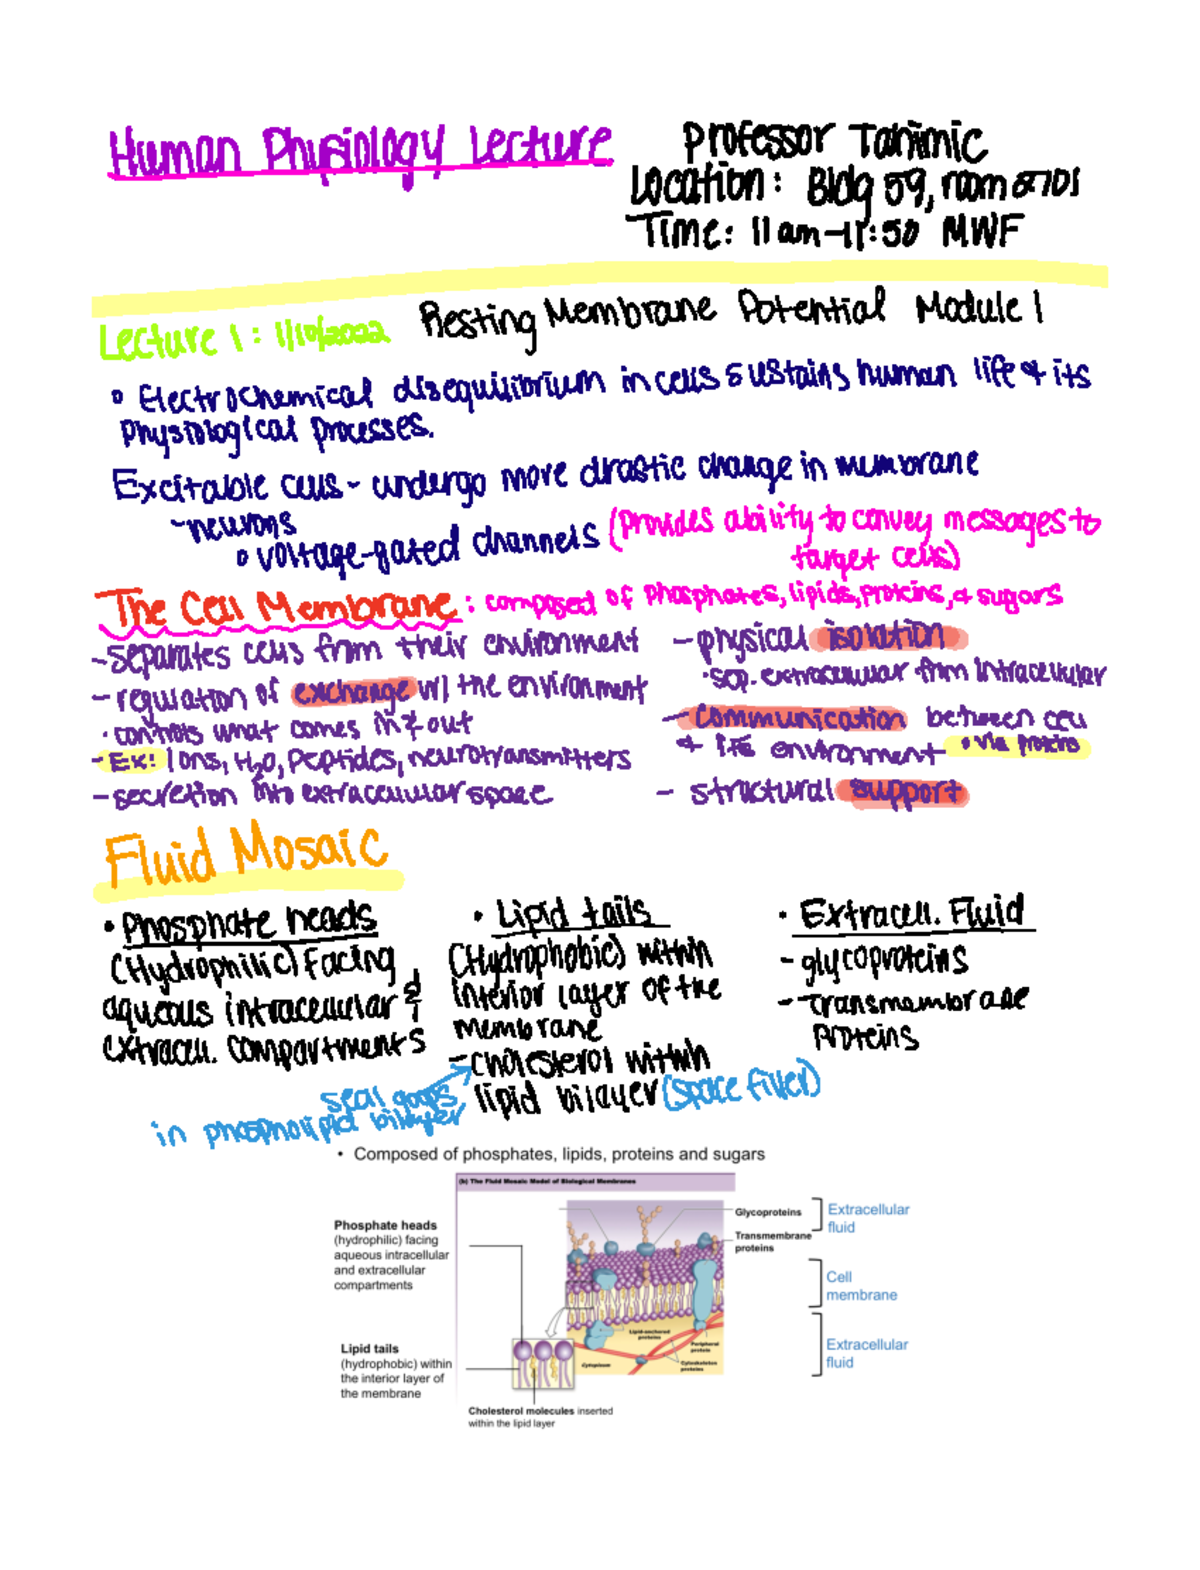 Human Physiology Lecture
Professor Tanimic
Location: Bldg 59, room
Time: 11am-11:50 MWF
Lecture 1: 1/10/2022 Resting Membrane Potential Module 1
• Electrochemical disequilibrium in cells sustains human life & its
physiological processes.
Excitable cells - undergo more drastic change in membrane
- neurons
• voltage-gated channels (provides ability to convey messages to
target cells)
The Cell Membrane: composed of phosphates, lipids, proteins, & sugars
- separates cells from their environment
- regulation of exchange w/ the environment
• controls what comes in & out
- Ex: Ions, H2O, peptides, neurotransmitters
- secretion into extracellular space
- physical isolation
• sep. extracellular from intracellular
- communication between cell
& its environment • via proteins
- structural support
Fluid Mosaic
• Phosphate heads
(Hydrophilic) facing
aqueous intracellular &
extracell. compartments
• Lipid tails
(Hydrophobic) within
interior layer of the
membrane
- cholesterol within
lipid bilayer (space filler)
seal gaps
in phospholipid bilayer
• Extracell. Fluid
- glycoproteins
- transmembrane
proteins
• Composed of phosphates, lipids, proteins and sugars
(b) The Fluid Mosaic Model of Biological Membranes
Phosphate heads
(hydrophilic) facing
aqueous intracellular
and extracellular
compartments
Lipid tails
(hydrophobic) within
the interior layer of
the membrane
Glycoproteins
Transmembrane
proteins
Lipid-anchored
proteins
Peripheral
protein
Cytoplasm
Cytoskeleton
proteins
Cholesterol molecules inserted
within the lipid layer
Extracellular
fluid
Cell
membrane
Extracellular
fluid